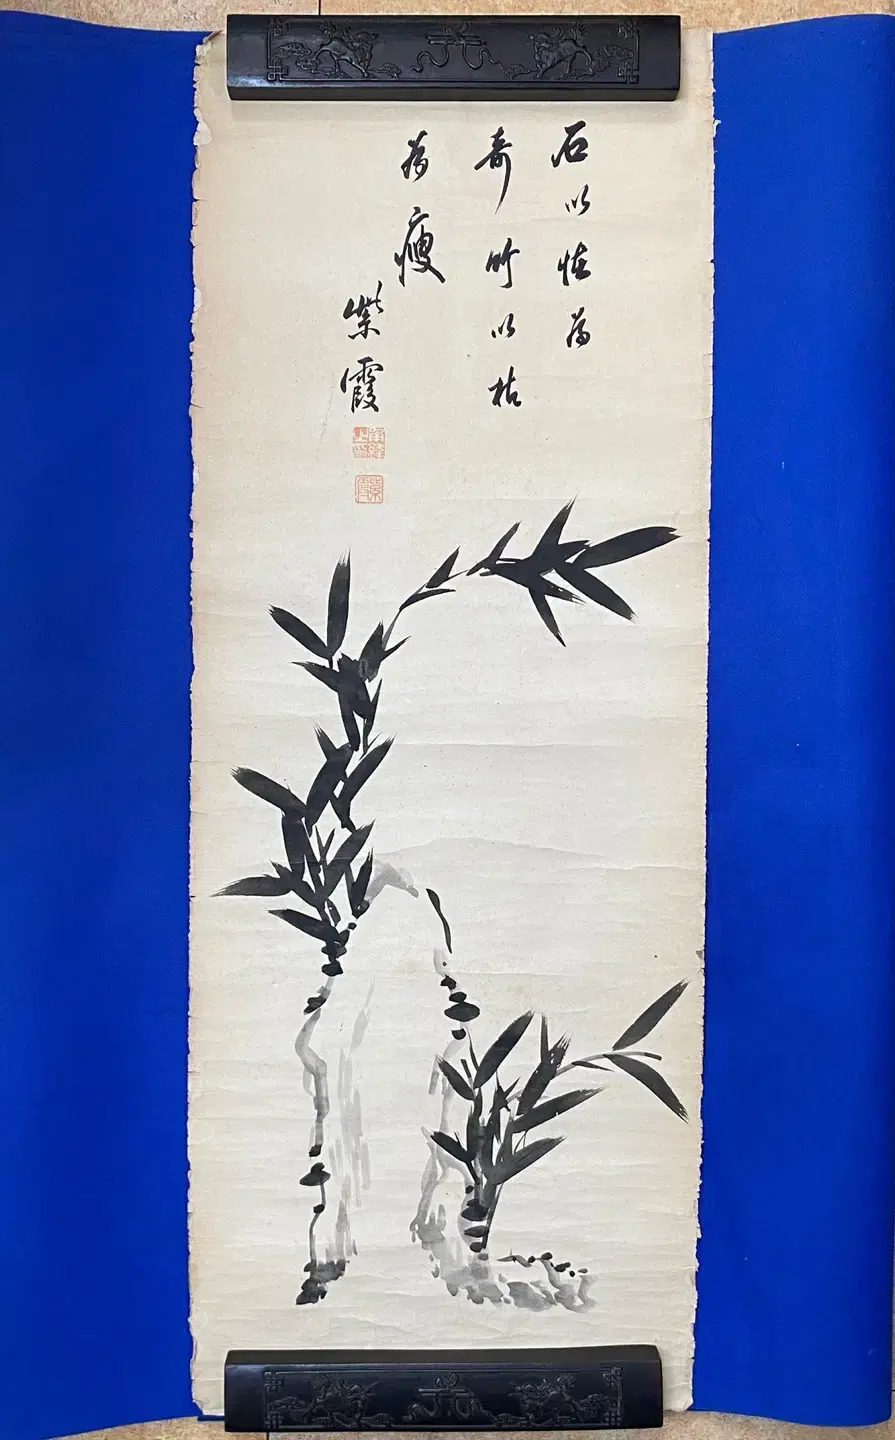 石以怪為
奇竹以枯
為瘦
紫霞